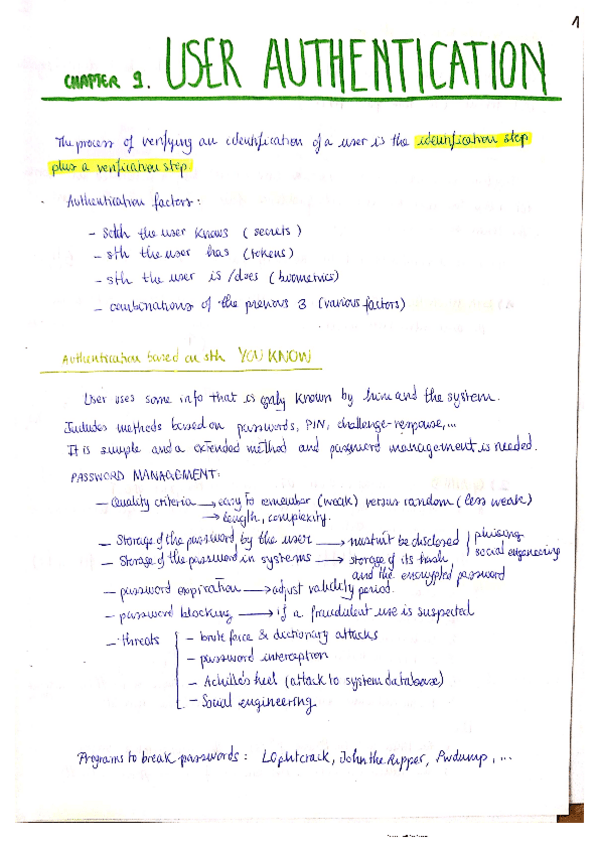 1
CHAPTER 9. USER AUTHENTICATION
The process of verifying an identification of a user is the identification step
plus a verification step.
Authentication factors:
- Sth the user knows (secrets)
- sth the user has (tokens)
- sth the user is /does (biometrics)
- combinations of the previous 3 (various factors)
Authentication based on sth YOU KNOW
User uses some info that is only known by him and the system.
Includes methods based on passwords, PIN, challenge-response,...
It is simple and a extended method and password management is needed.
PASSWORD MANAGEMENT:
- Quality criteria → easy to remember (weak) versus random (less weak)
→ length, complexity.
- Storage of the password by the user → mustn't be disclosed } phising
- Storage of the password in systems → storage of its hash, social engineering
and the encrypted password
- password expiration → adjust validity period.
- password blocking → if a fraudulent use is suspected
- threats - brute force & dictionary attacks
- password interception
- Achille's heel (attack to system database)
- Social engineering
Programs to break passwords: L0phtcrack, John the Ripper, Pwdump, ...